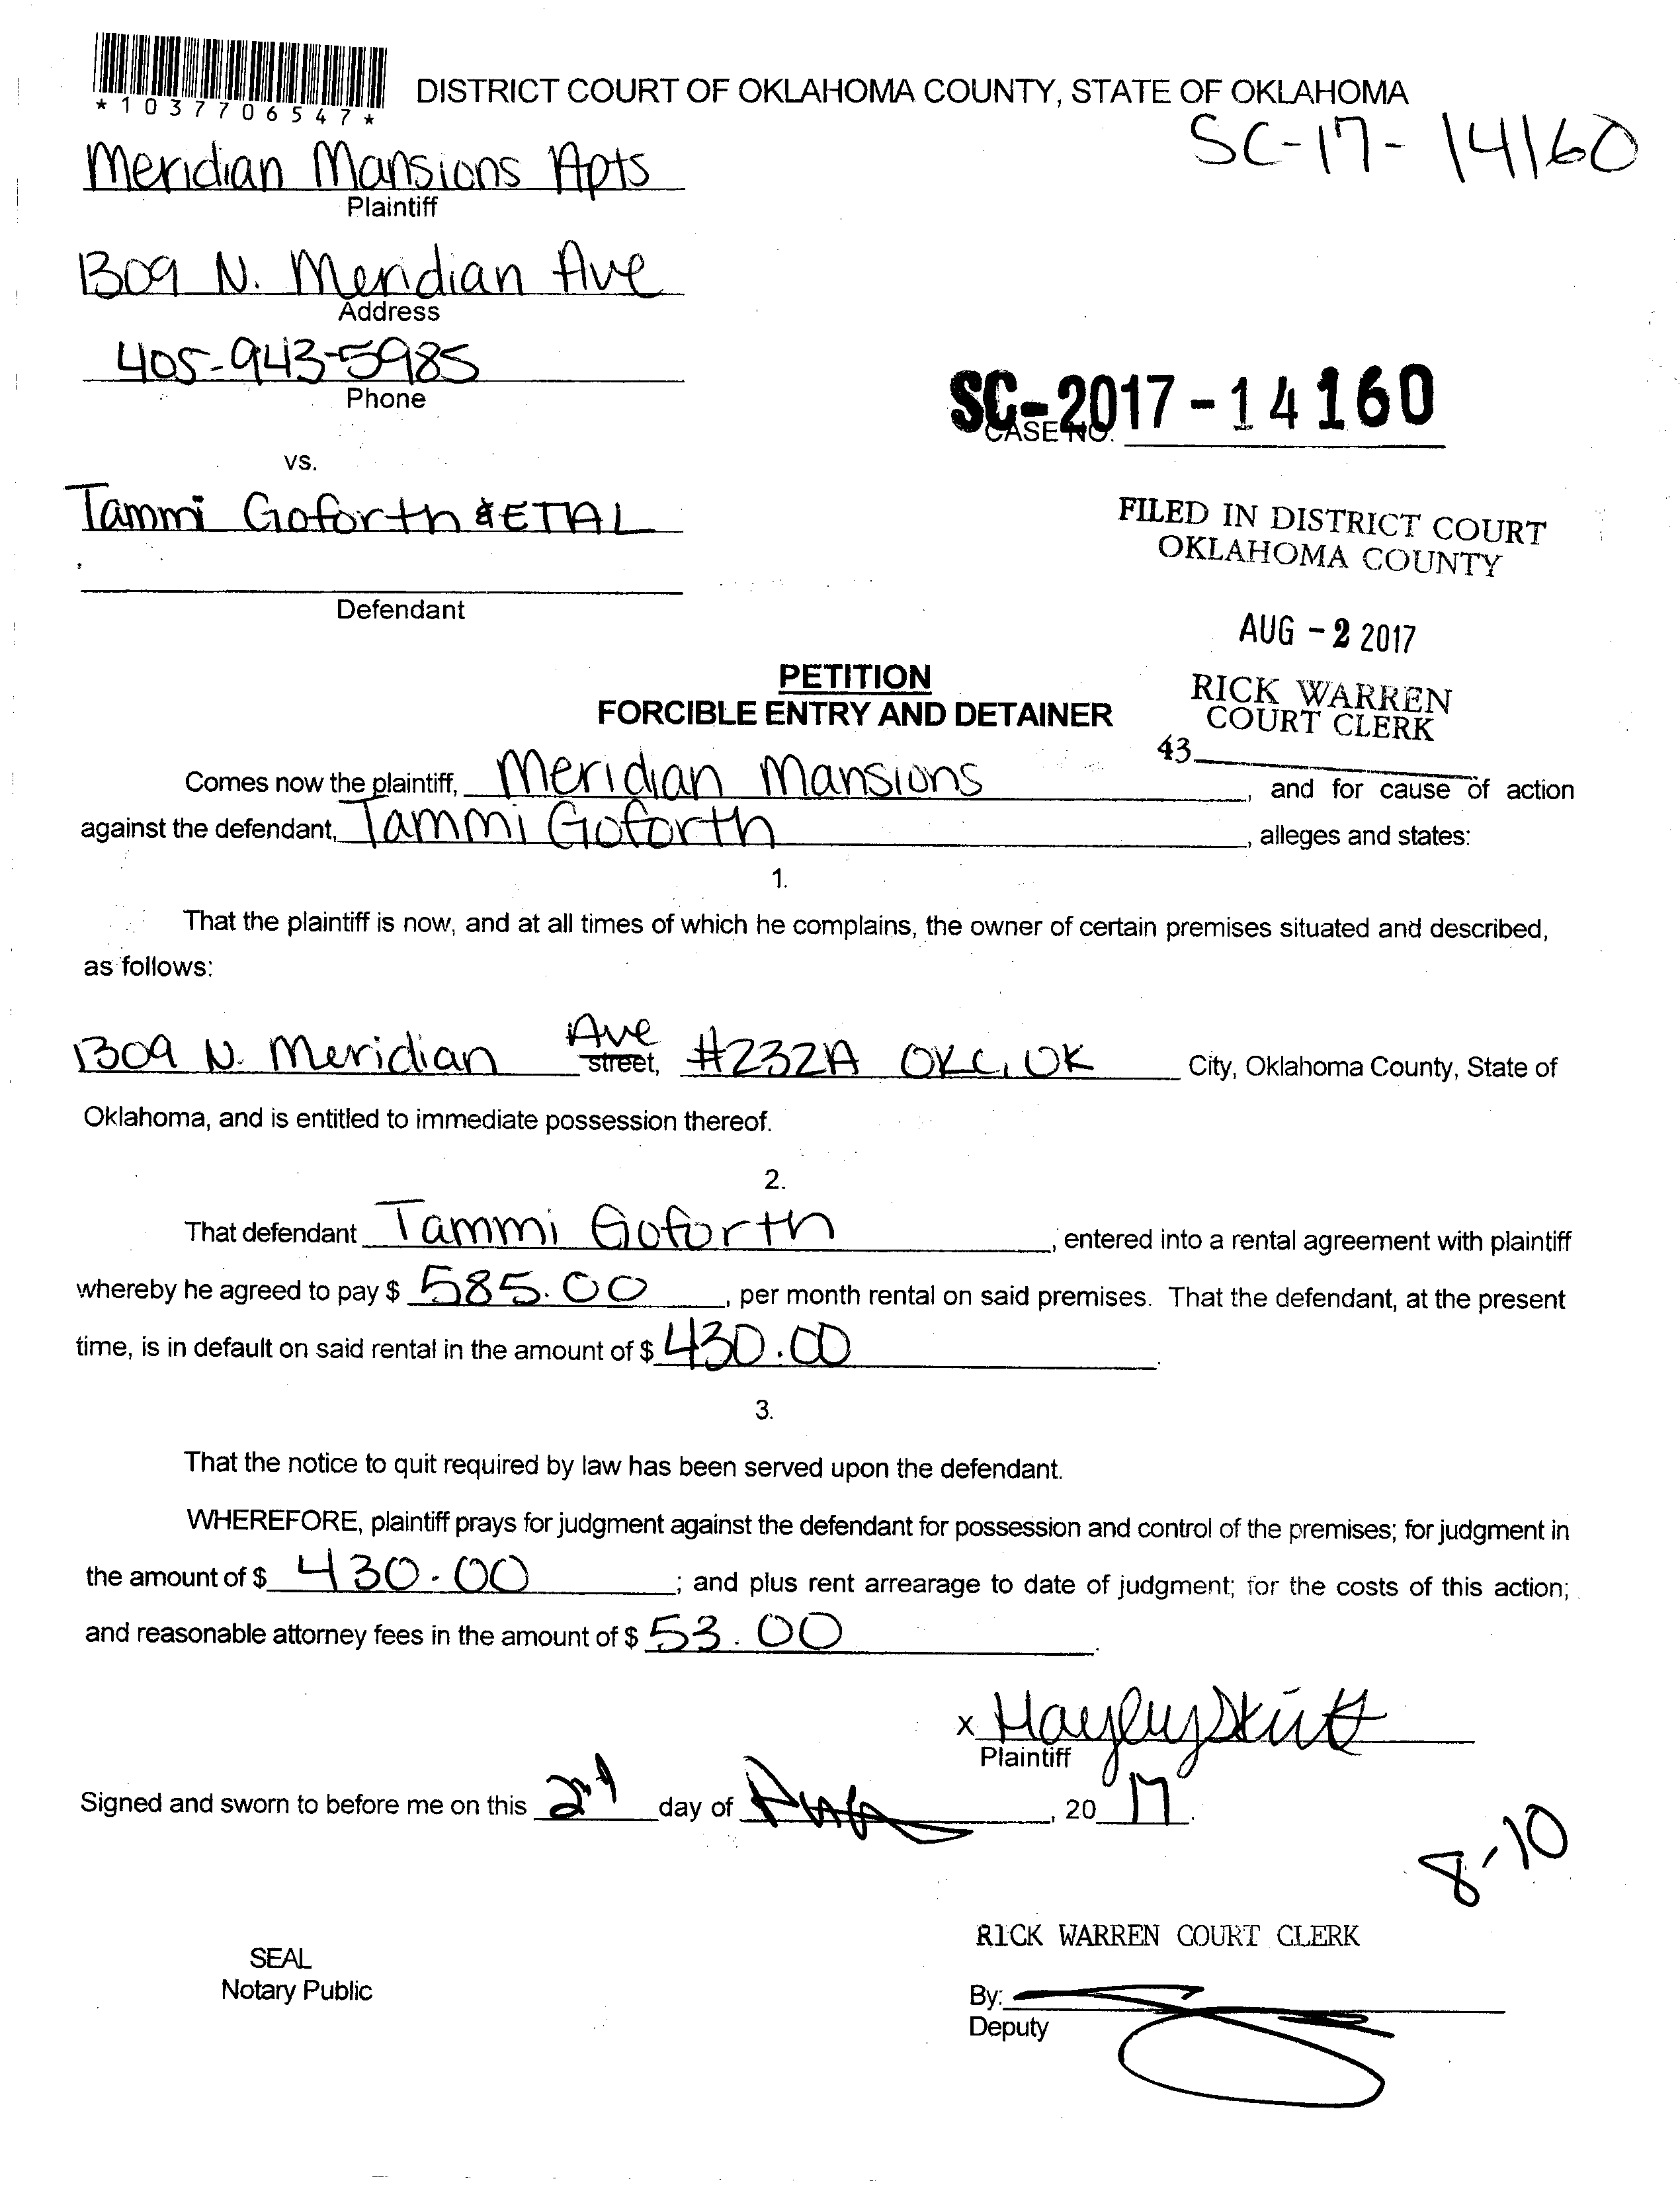 *1037706547*
DISTRICT COURT OF OKLAHOMA COUNTY, STATE OF OKLAHOMA
SC-17-14160
Meridian Mansions Apts
Plaintiff
1309 N. Meridian Ave
Address
405-943-5985
Phone
SC-2017-14160
CASE NO.
vs.
Tammi Goforth & ETAL
Defendant
FILED IN DISTRICT COURT
OKLAHOMA COUNTY
AUG - 2 2017
RICK WARREN
COURT CLERK
43
PETITION
FORCIBLE ENTRY AND DETAINER
Comes now the plaintiff, Meridian Mansions, and for cause of action
against the defendant, Tammi Goforth, alleges and states:
1.
That the plaintiff is now, and at all times of which he complains, the owner of certain premises situated and described,
as follows:
1309 N. Meridian Ave street, #232A OKC, OK City, Oklahoma County, State of
Oklahoma, and is entitled to immediate possession thereof.
2.
That defendant Tammi Goforth, entered into a rental agreement with plaintiff
whereby he agreed to pay $ 585.00, per month rental on said premises. That the defendant, at the present
time, is in default on said rental in the amount of $ 430.00.
3.
That the notice to quit required by law has been served upon the defendant.
WHEREFORE, plaintiff prays for judgment against the defendant for possession and control of the premises; for judgment in
the amount of $ 430.00; and plus rent arrearage to date of judgment; for the costs of this action;
and reasonable attorney fees in the amount of $ 53.00.
x
Plaintiff
Signed and sworn to before me on this 2nd day of , 20 17.
8-10
RICK WARREN COURT CLERK
SEAL
Notary Public
By:
Deputy